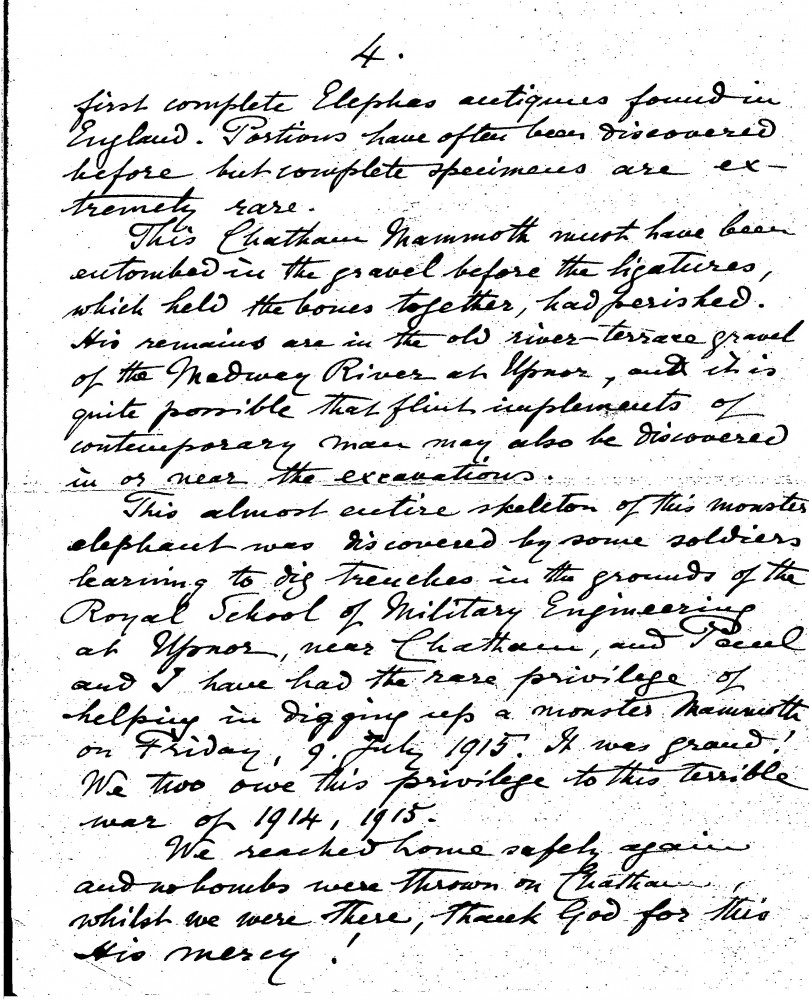 4.
first complete Elephas antiquus found in
England. Portions have often been discovered
before but complete specimens are ex-
tremely rare.
This Chatham Mammoth must have been
entombed in the gravel before the ligatures,
which held the bones together, had perished.
His remains are in the old river-terrace gravel
of the Medway River at Upnor, and it is
quite possible that flint implements of
contemporary man may also be discovered
in or near the excavations.
This almost entire skeleton of this monster
elephant was discovered by some soldiers
learning to dig trenches in the grounds of the
Royal School of Military Engineering
at Upnor, near Chatham, and Paul
and I have had the rare privilege of
helping in digging up a monster Mammoth
on Friday, 9. July 1915. It was grand!
We two owe this privilege to this terrible
war of 1914, 1915.
We reached home safely again
and no bombs were thrown on Chatham,
whilst we were there, thank God for this
His mercy!